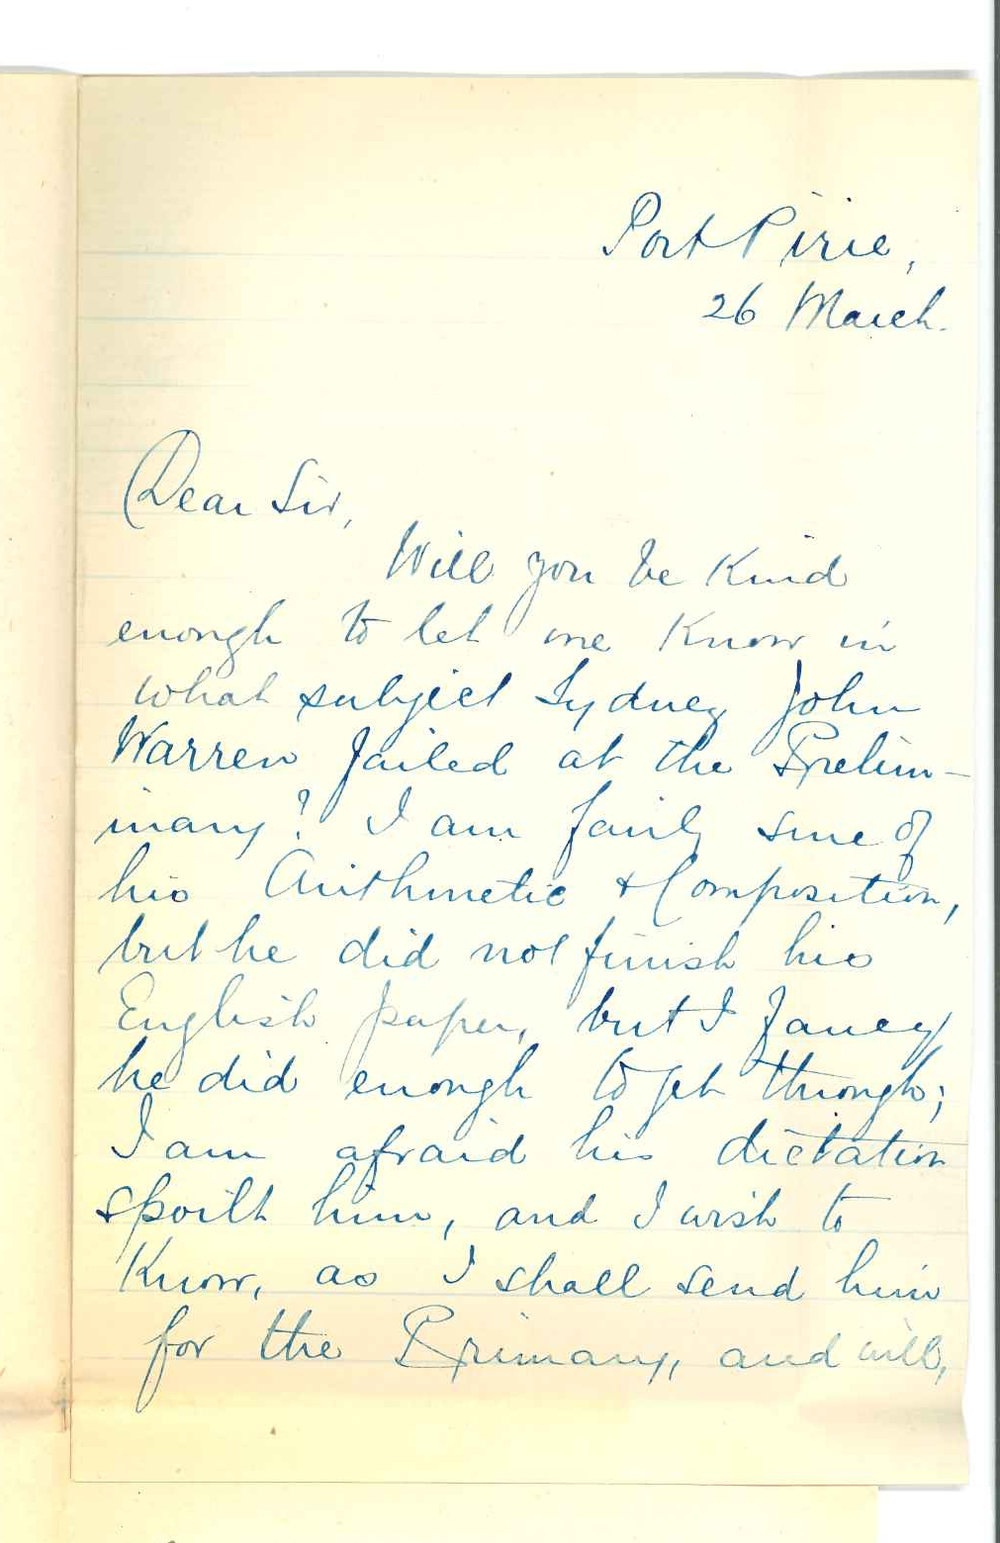 Port Pirie,
26 March.
Dear Sir,
Will you be kind
enough to let me know in
what subject Sydney John
Warren failed at the Prelim-
inary? I am fairly sure of
his Arithmetic & Composition,
but he did not finish his
English paper, but I fancy
he did enough to get through;
I am afraid his dictation
spoilt him, and I wish to
know, as I shall send him
for the Primary, and will,